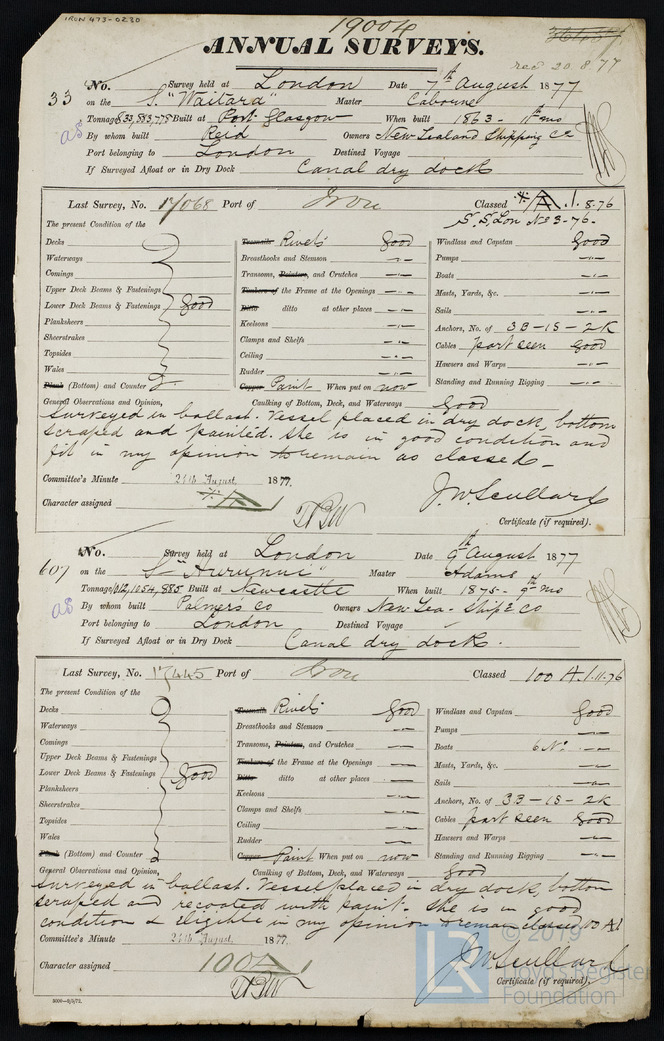 IRON 473-0230
19004
ANNUAL SURVEYS.
rec 20.8.77
33 No. Survey held at London Date 7th August 1877
on the S. "Waitara" Master Cabourne
Tonnage 833,883,775 Built at Port Glasgow When built 1863 - 11th mo
as By whom built Reid Owners New Zealand Shipping Co
Port belonging to London Destined Voyage
If Surveyed Afloat or in Dry Dock Canal dry dock
Last Survey, No. 17068 Port of Iron Classed A.1. 8.76
S.S. Lon No 3-76.
The present Condition of the
Decks
Waterways
Comings
Upper Deck Beams & Fastenings
Lower Deck Beams & Fastenings good
Planksheers
Sheerstrakes
Topsides
Wales
Plank (Bottom) and Counter
Treenails Rivets good
Breasthooks and Stemson -"-
Transoms, Pointers, and Crutches -"-
Timbers of the Frame at the Openings -"-
Ditto ditto at other places -"-
Keelsons -"-
Clamps and Shelfs -"-
Ceiling -"-
Rudder -"-
Copper Paint When put on now
Windlass and Capstan good
Pumps -"-
Boats -"-
Masts, Yards, &c. -"-
Sails -"-
Anchors, No. of 3B-1S-2K
Cables part seen good
Hawsers and Warps -"-
Standing and Running Rigging -"-
General Observations and Opinion, Caulking of Bottom, Deck, and Waterways Good
Surveyed in ballast. Vessel placed in dry dock, bottom
scraped and painted. She is in good condition and
fit in my opinion to remain as classed_
Committee's Minute 21th August 1877.
Character assigned A1
J.W. Scullard
Certificate (if required).
607 No. Survey held at London Date 9th August 1877
on the S "Hurunui" Master Adams
Tonnage 1012,1054,885 Built at Newcastle When built 1875 - 9th mo
as By whom built Palmers Co Owners New Zea- Ship & Co
Port belonging to London Destined Voyage
If Surveyed Afloat or in Dry Dock Canal dry dock.
Last Survey, No. 17445 Port of Iron Classed 100 A.1. 11.76
The present Condition of the
Decks
Waterways
Comings
Upper Deck Beams & Fastenings
Lower Deck Beams & Fastenings good
Planksheers
Sheerstrakes
Topsides
Wales
Plank (Bottom) and Counter
Treenails Rivets good
Breasthooks and Stemson
Transoms, Pointers, and Crutches
Timbers of the Frame at the Openings
Ditto ditto at other places
Keelsons
Clamps and Shelfs
Ceiling
Rudder
Copper Paint When put on now
Windlass and Capstan good
Pumps
Boats 6 No.
Masts, Yards, &c.
Sails
Anchors, No. of 3B-1S-2K
Cables part seen good
Hawsers and Warps
Standing and Running Rigging
General Observations and Opinion, Caulking of Bottom, Deck, and Waterways Good
Surveyed in ballast. Vessel placed in dry dock, bottom
scraped and recoated with paint. She is in good
condition & eligible in my opinion to remain classed 100 A1
Committee's Minute 21th August 1877.
Character assigned 100A1
J.W. Scullard
Certificate (if required).
© 2019
Lloyd's Register
Foundation